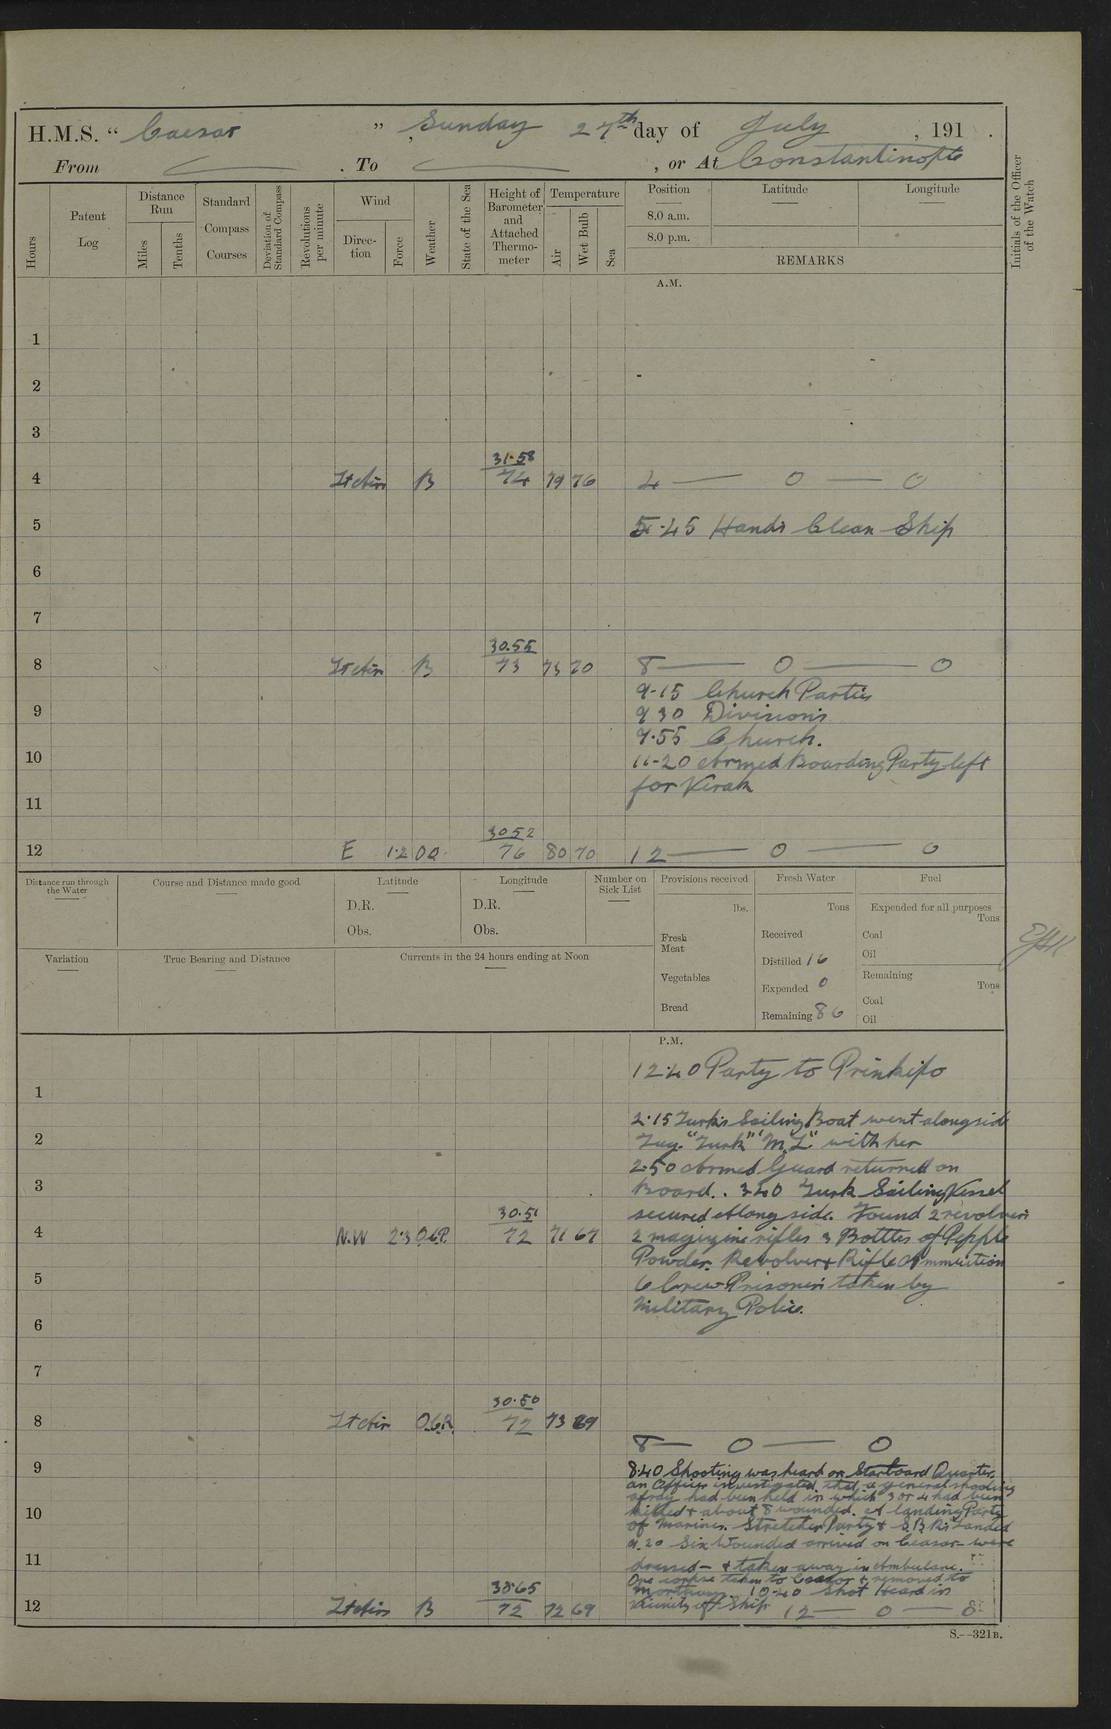 H.M.S. " Caesar " Sunday 27th day of July , 191 .
From . To , or At Constantinople
Hours
Patent Log
Distance Run
Miles
Tenths
Standard Compass Courses
Deviation of Standard Compass
Revolutions per minute
Wind
Direction
Force
Weather
State of the Sea
Height of Barometer and Attached Thermometer
Temperature
Air
Wet Bulb
Sea
Position
8.0 a.m.
8.0 p.m.
Latitude
Longitude
REMARKS
Initials of the Officer of the Watch
A.M.
1
2
3
31.58
4 Lt Airs B 74 79 76 4 — 0 — 0
5 5.45 Hands Clean Ship
6
7
30.55
8 Lt Air B 73 73 70 8 — 0 — 0
9.15 Church Parties
9 9 30 Divisions
9.55 Church.
10 11-20 Armed Boarding Party left
for
11
30 52
12 E 1.2 76 80 70 12 — 0 — 0
Distance run through the Water
Course and Distance made good
Latitude
D.R.
Obs.
Longitude
D.R.
Obs.
Number on Sick List
Provisions received
lbs.
Fresh Meat
Vegetables
Bread
Fresh Water
Tons
Received
Distilled 16
Expended 0
Remaining 86
Fuel
Expended for all purposes
Tons
Coal
Oil
Remaining
Tons
Coal
Oil
Variation
True Bearing and Distance
Currents in the 24 hours ending at Noon
P.M.
12.40 Party to Prinkipo
1
2.15 Turks Sailing Boat went alongside
2 Tug. "Turk" "M.L" with her
2.50 Armed Guard returned on
3 Board. . 3.40 Turk Sailing Vessel
30.51 secured Along side. Found 2 revolvers
4 N.W 2.3 72 71 67 2 magazine rifles 3 Bottles of Pepper
Powder. Revolver & Rifle Ammunition
5 6 Crew Prisoners taken by
Military Police.
6
7
30.50
8 Lt Air 72 73 69
8 — 0 — 0
9 8.40 Shooting was heard on Starboard Quarter.
an Officer investigated that a general shooting
afray had been held in which 3 or 4 had been
10 killed & about 8 wounded. A landing Party
of Marines. Stretcher Party & S.B.Rs Landed
9.20 Six Wounded arrived on Ceasar were
11 dressed — & taken away in Ambulanc.
One corpse taken to Ceasar & removed to
30.65 mortuary. 10.40 Shot Heard in
12 Lt Airs B 72 72 69 vicinity of Ship 12 — 0 — 0
S.—321B.